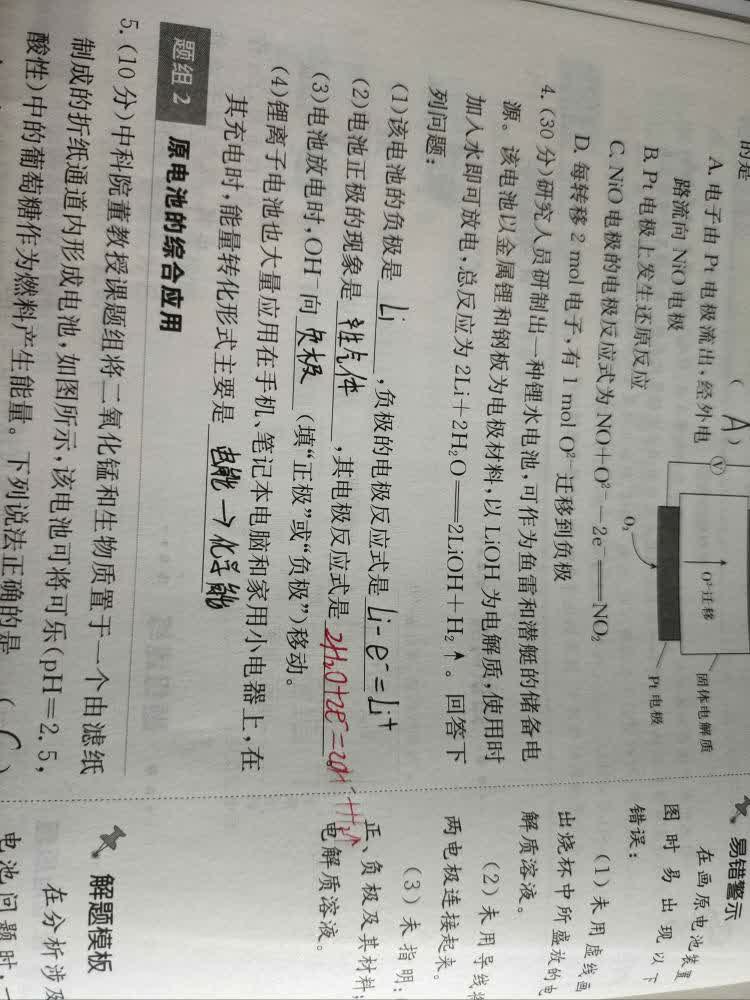 的是
( A )
A. 电子由 Pt 电极流出,经外电
路流向 NiO 电极
B. Pt 电极上发生还原反应
C. NiO 电极的电极反应式为 NO+O²⁻-2e⁻══NO₂
D. 每转移 2 mol 电子,有 1 mol O²⁻ 迁移到负极
V
O₂
O²⁻迁移
固体电解质
Pt 电极
4. (30 分)研究人员研制出一种锂水电池,可作为鱼雷和潜艇的储备电
源。该电池以金属锂和钢板为电极材料,以 LiOH 为电解质,使用时
加入水即可放电,总反应为 2Li+2H₂O══2LiOH+H₂↑。回答下
列问题:
(1)该电池的负极是 Li ,负极的电极反应式是 Li-e⁻=Li⁺
(2)电池正极的现象是 气体 ,其电极反应式是 2H₂O+2e⁻=2OH⁻+H₂↑
(3)电池放电时,OH⁻ 向 负极 (填“正极”或“负极”)移动。
(4)锂离子电池也大量应用在手机、笔记本电脑和家用小电器上,在
其充电时,能量转化形式主要是 电能→化学能
题组 2 原电池的综合应用
5. (10 分)中科院董教授课题组将二氧化锰和生物质置于一个由滤纸
制成的折纸通道内形成电池,如图所示,该电池可将可乐(pH=2.5,
酸性)中的葡萄糖作为燃料产生能量。下列说法正确的是 ( C )
易错警示
在画原电池装置
图时易出现以下
错误:
(1)未用虚线画
出烧杯中所盛放的电
解质溶液。
(2)未用导线将
两电极连接起来。
(3)未指明:
正、负极及其材料;
电解质溶液。
解题模板
在分析涉及
电池问题时,